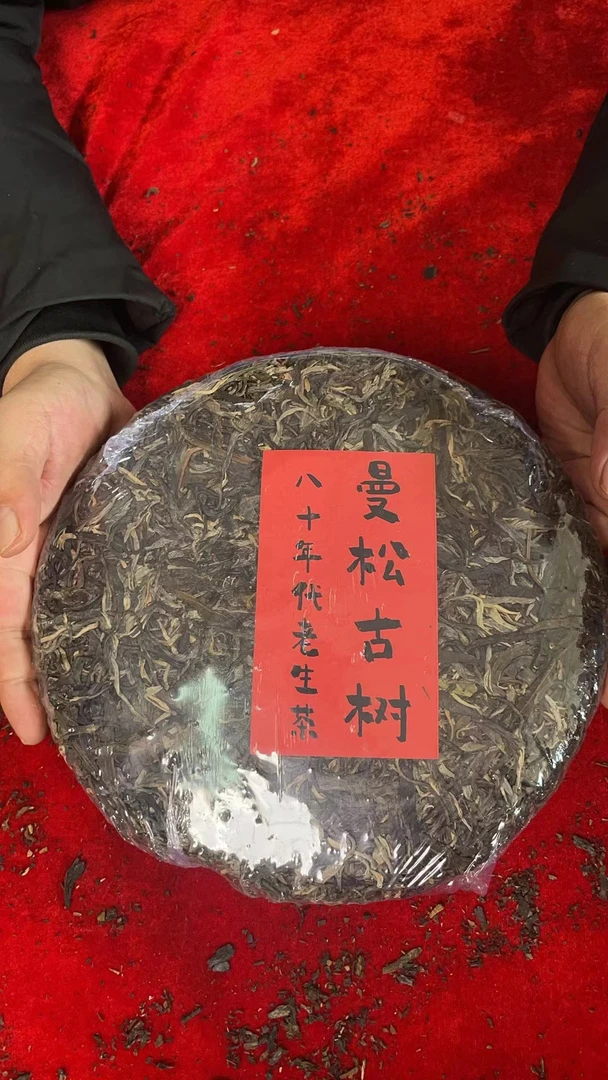 曼松古树
八十年代老生茶